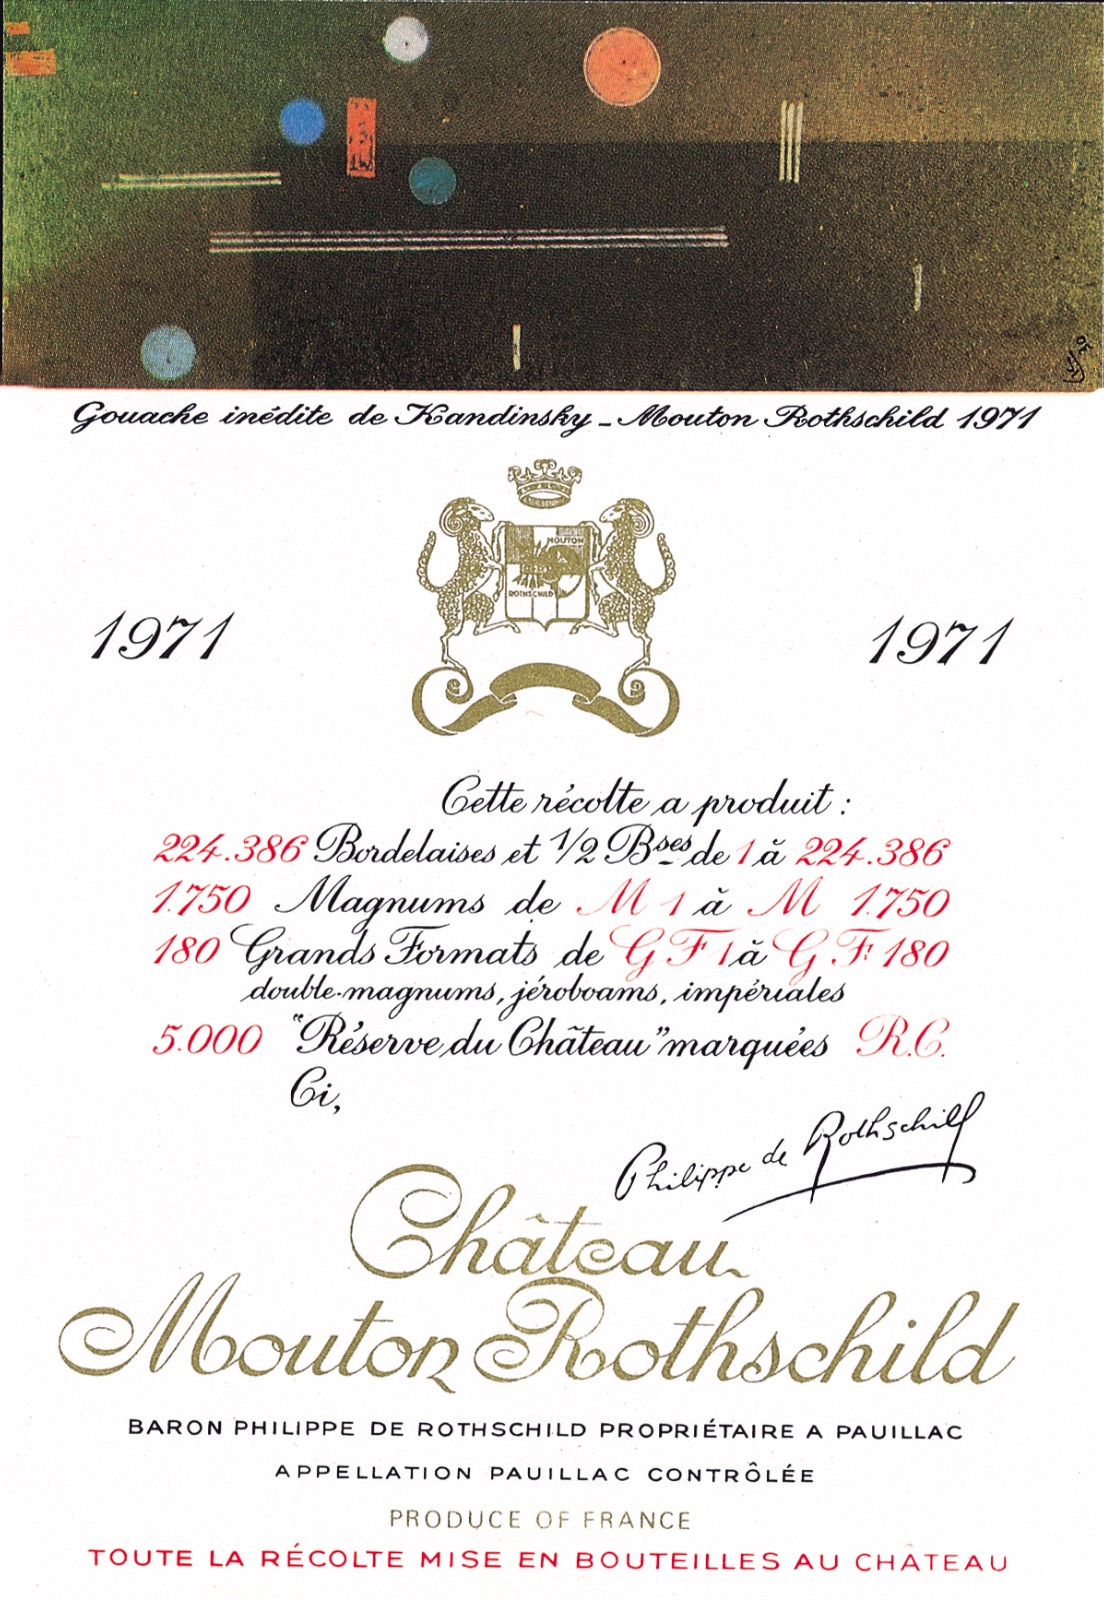 Gouache inédite de Kandinsky - Mouton Rothschild 1971
MOUTON
ROTHSCHILD
1971 1971
Cette récolte a produit :
224.386 Bordelaises et 1/2 Bses de 1 à 224.386
1.750 Magnums de M 1 à M 1.750
180 Grands Formats de G F 1 à G F 180
double-magnums, jéroboams, impériales
5.000 "Réserve du Château" marquées R.C.
Ci,
Philippe de Rothschild
Château
Mouton Rothschild
BARON PHILIPPE DE ROTHSCHILD PROPRIÉTAIRE A PAUILLAC
APPELLATION PAUILLAC CONTRÔLÉE
PRODUCE OF FRANCE
TOUTE LA RÉCOLTE MISE EN BOUTEILLES AU CHÂTEAU